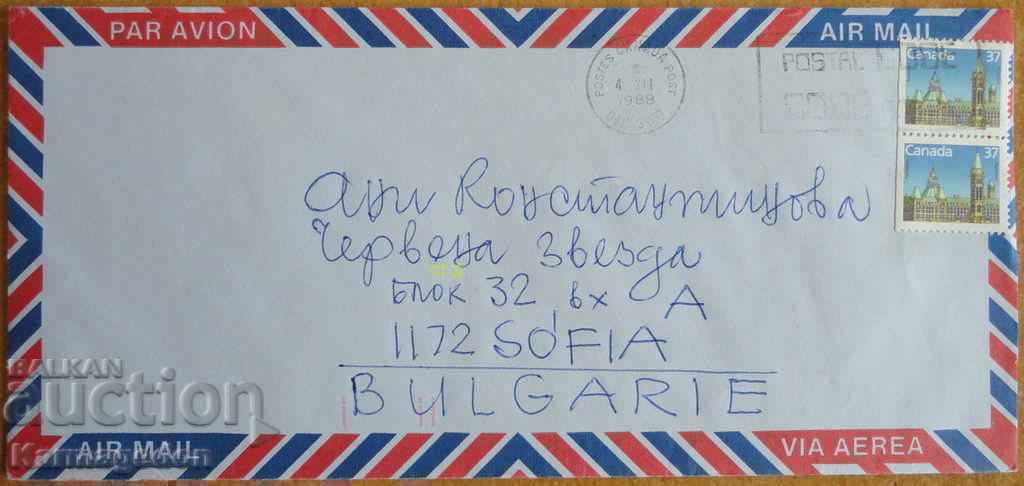 PAR AVION
AIR MAIL
POSTES CANADA POST
4 VII
1988
POSTAL CODE
CODE
Canada 37
Canada 37
Ани Константинова
Червена звезда
блок 32, вх А
1172 SOFIA
BULGARIE
BALKAN
auction
Karmageddon
AIR MAIL
VIA AEREA